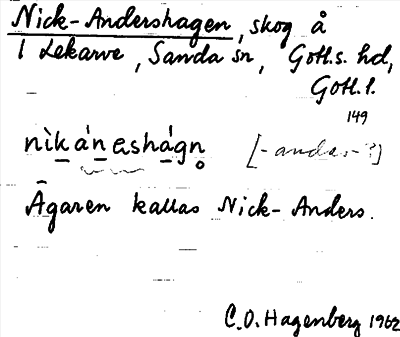 Nick-Andershagen, skog å
1 Lekarve, Sanda sn, Gotl.s. hd,
Gotl. l.
149
nìkánɐshágn̥ [-andas-?]
Ägaren kallas Nick-Anders.
C.O. Hagenberg 1962